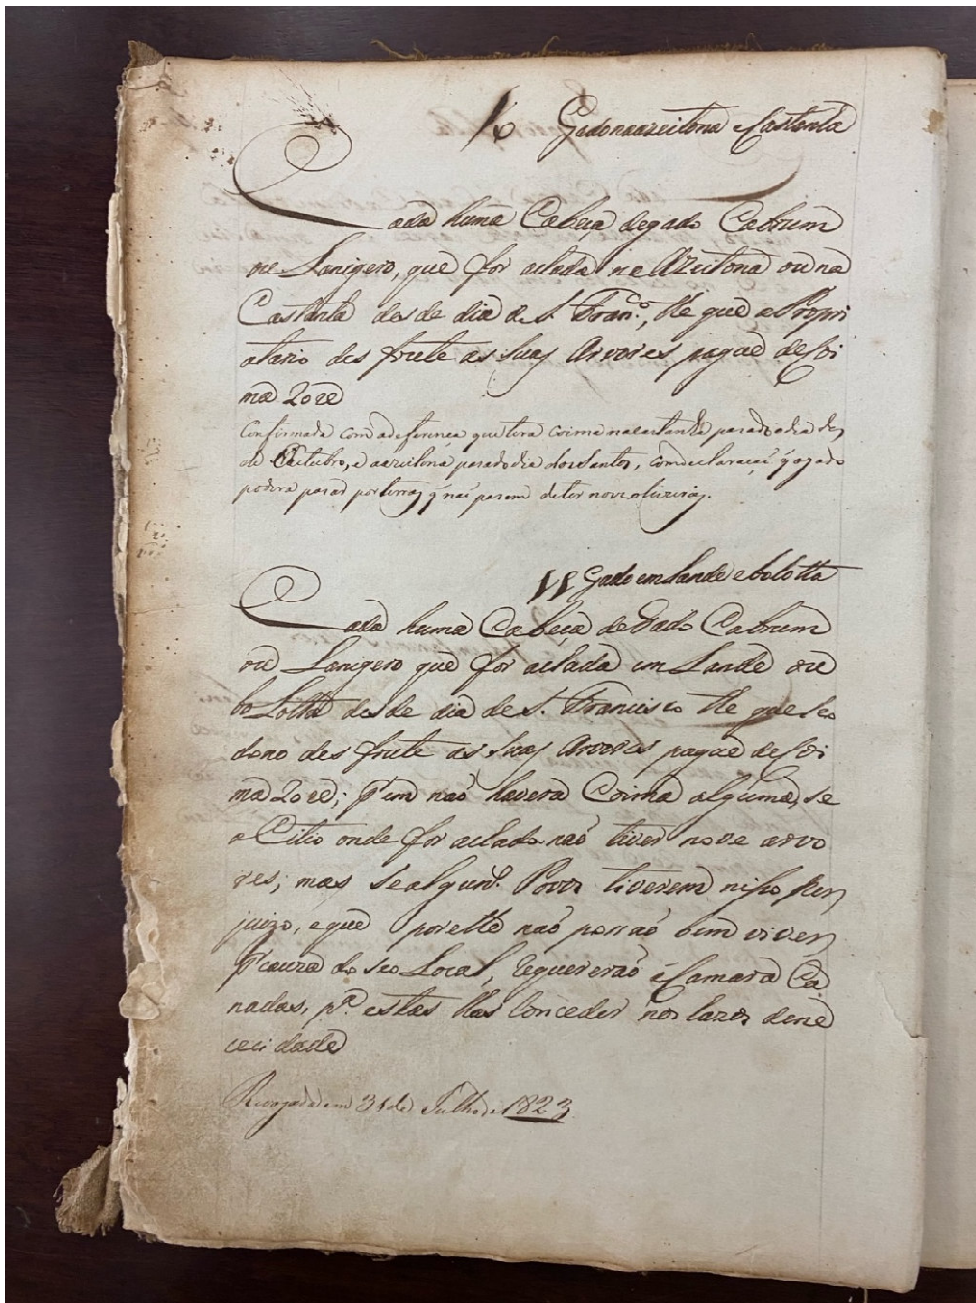 Gado na azeitona e Castanha
Cada huma Cabeça de gado Cabrum
ou Lanigero, que for achada na Azeitona ou na
Castanha desde dia de S. Franco., the que o Propri
atario des frute as suas Arvores, pague de Coi
ma 20 rs
Confirmada com a diferença que tera Coima na castanha passado o dia des
de Outubro, e a azeitona passado dia dos Santos, com declaração q̃ o gado
podera pasar por terras q̃ naõ pasem de ter nove oliveiras.
11 Gado em Lande e bolotta
Cada huma Cabeça de Gado Cabrum
ou Lanigero que for achada em Lande ou
bolotta desde dia de S. Francisco the que seo
dono des frute as suas Arvores pague de Coi
ma 20 rs; Porem naõ haverá Coima alguma, se
o Citio onde for achado naõ tiver nove arvo
res; mas se algũns Povos tiverem nisso Per
juizo, e que por elle naõ possaõ bem viver,
P. cauza do seo Local, requereraõ á Camara Ca
nadas, pa. estas lhas Conceder nos cazos de ne
cecidade
Revogada em 31 de Julho de 1823